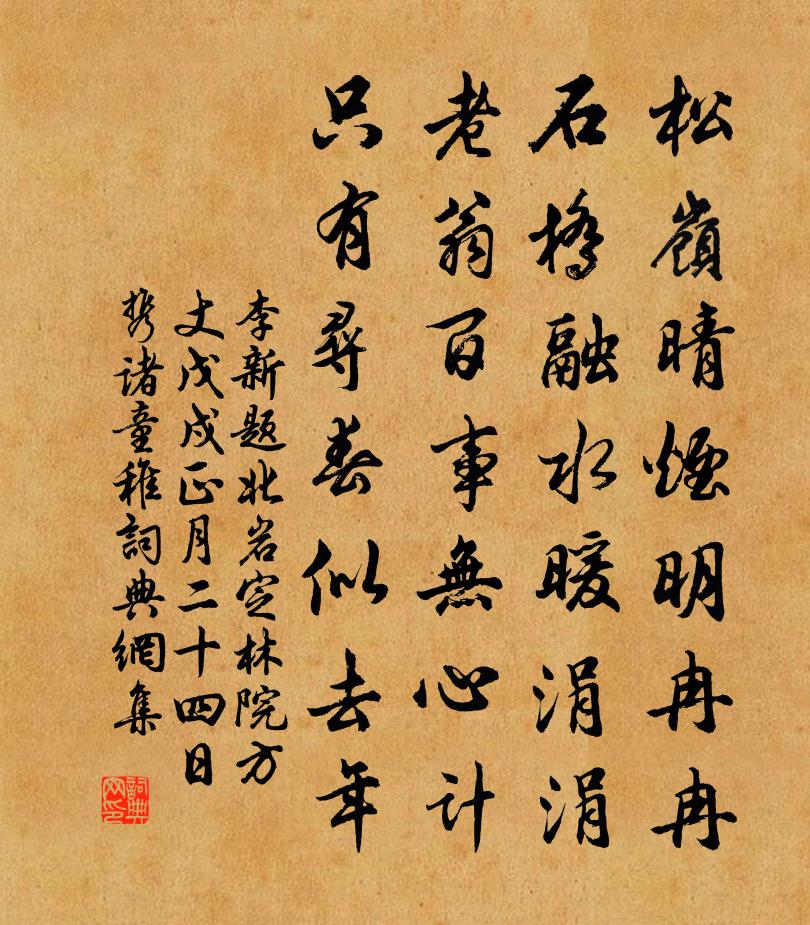 松嶺晴煙明冉冉
石橋融水暖涓涓
老翁百事無心計
只有尋春似去年
李新題北岩定林院方
丈戊戌正月二十四日
携诸童稚詞典網集
詞典网印